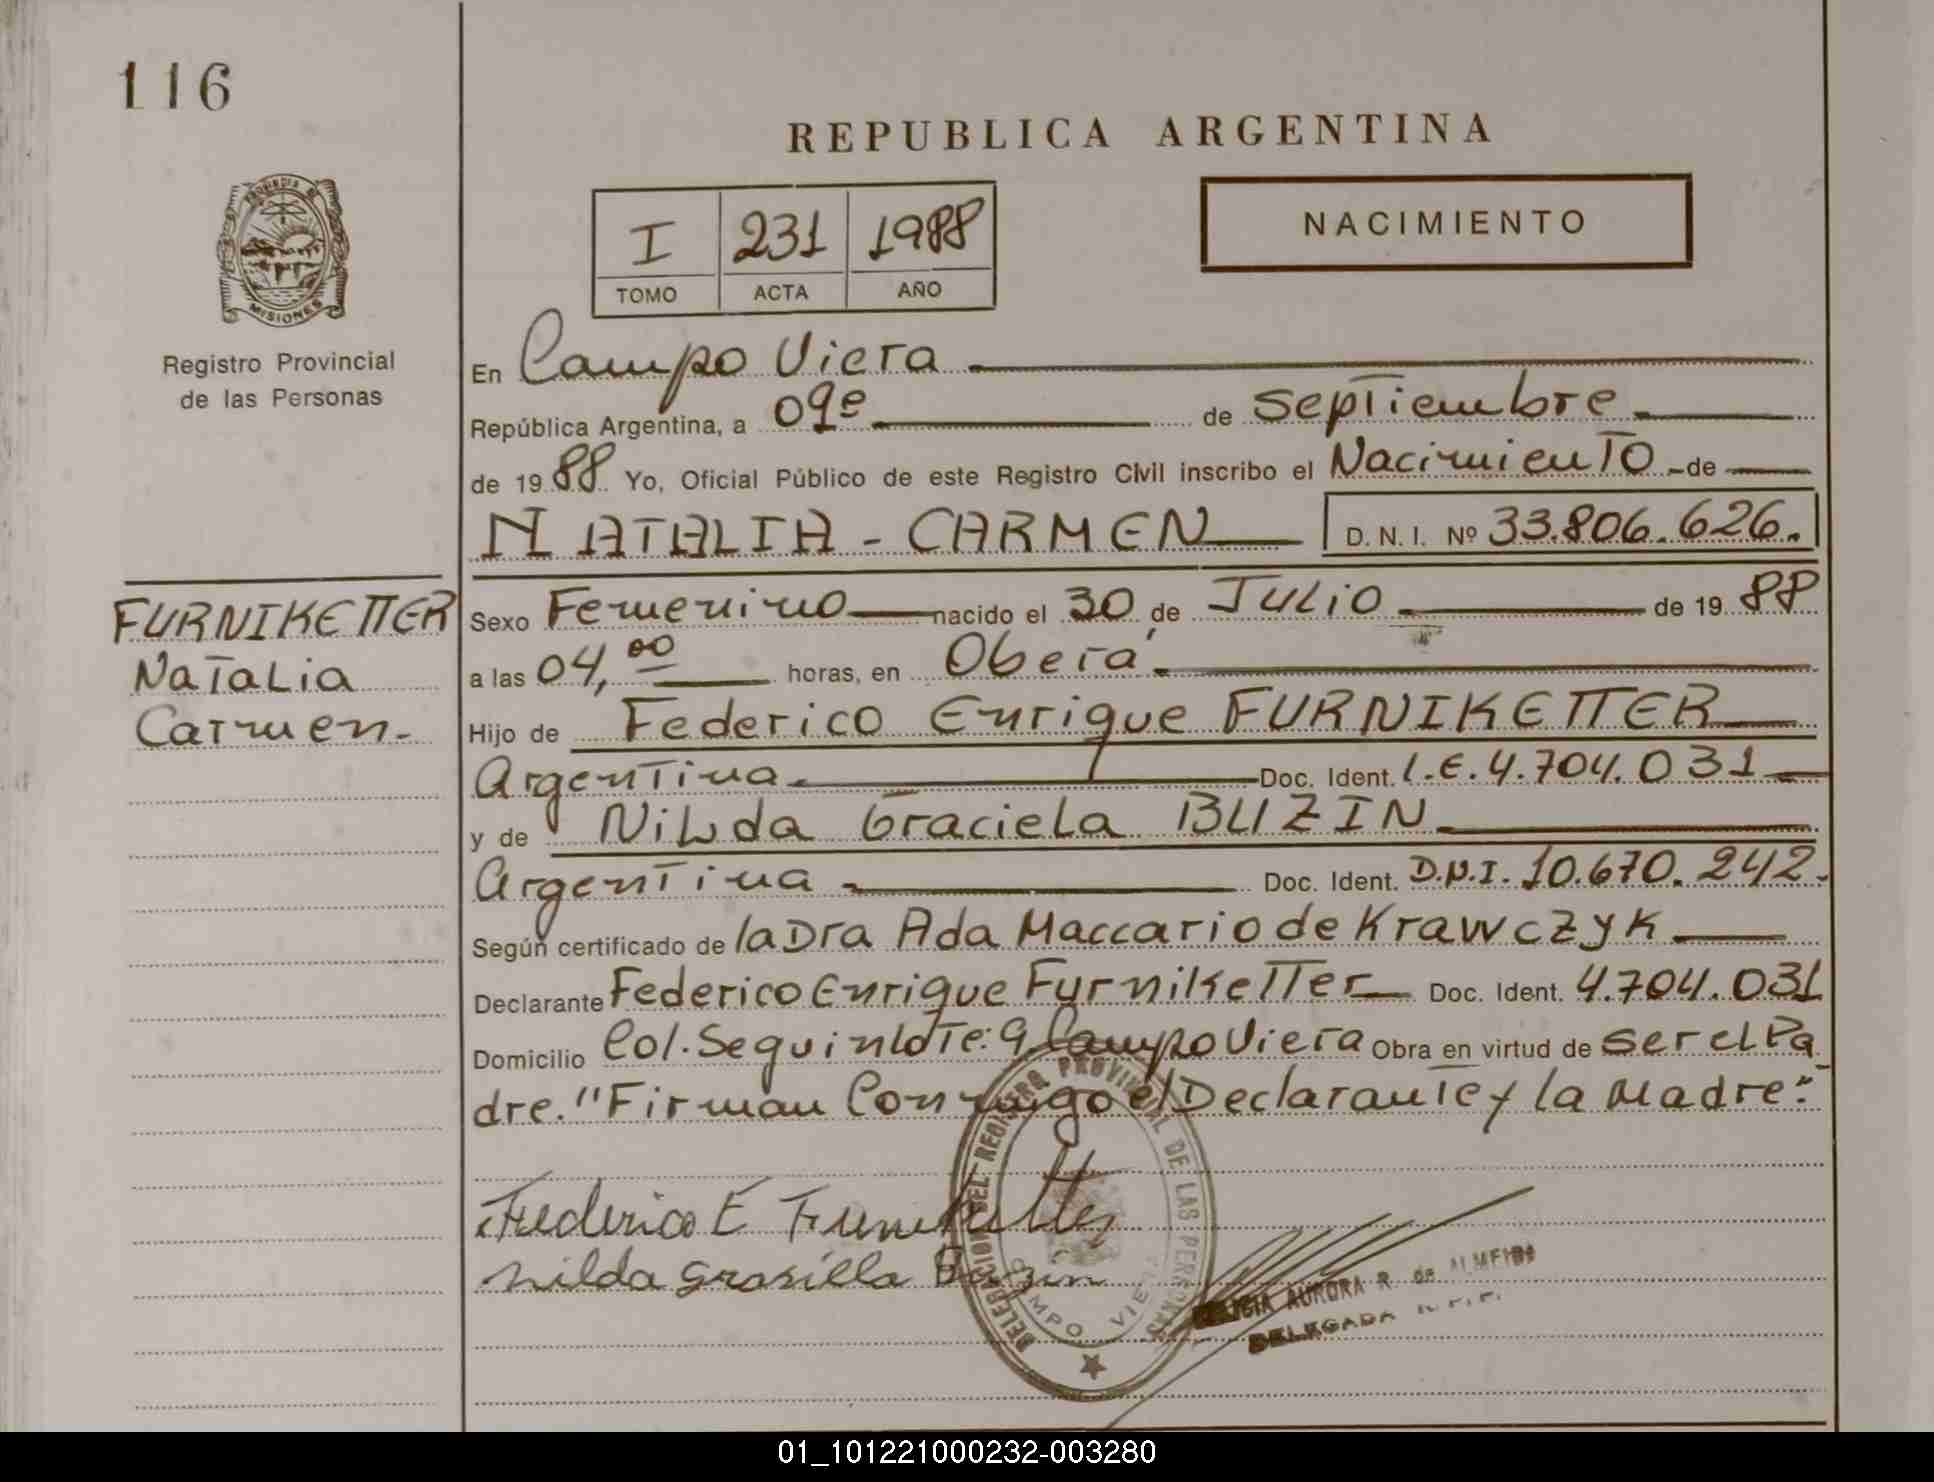 116
REPUBLICA ARGENTINA
PROVINCIA DE
MISIONES
Registro Provincial
de las Personas
I 231 1988
TOMO ACTA AÑO
NACIMIENTO
En Campo Viera
República Argentina, a 09º de Septiembre
de 1988 Yo, Oficial Público de este Registro Civil inscribo el Nacimiento de
NATALIA - CARMEN D. N. I. Nº 33.806.626.
FURNIKETTER
Natalia
Carmen.-
Sexo Femenino nacido el 30 de Julio de 1988
a las 04,00 horas, en Oberá
Hijo de Federico Enrique FURNIKETTER
Argentina Doc. Ident. L.E. 4.704.031
y de Nilda Graciela BUZIN
Argentina Doc. Ident. D.N.I. 10.670.242.
Según certificado de la Dra Ada Maccario de Krawczyk
Declarante Federico Enrique Furniketter Doc. Ident. 4.704.031
Domicilio Col. Seguin lote: 9 Campo Viera Obra en virtud de ser el Pa
dre. "Firman Conmigo el Declarante y la Madre".-
Federico E Furniketter
nilda grasiella Buzin
DELEGACION DEL REGISTRO PROVINCIAL DE LAS PERSONAS
CAMPO VIERA
AURORA R. de ALMEIDA
DELEGADA
01_101221000232-003280